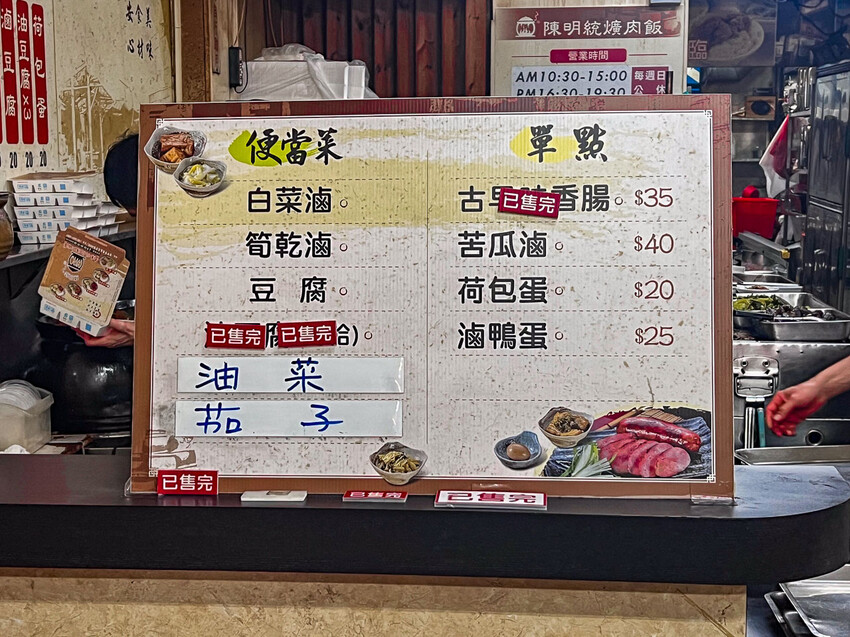 滷豆腐 20
油豆腐×3 20
荷包蛋 20
陳明統爌肉飯
營業時間
AM10:30-15:00
PM16:30-19:30
每週日
公休
便當菜
白菜滷
筍乾滷
豆腐
已售完 已售完
油菜
茄子
單點
古早 已售完 香腸 $35
苦瓜滷 $40
荷包蛋 $20
滷鴨蛋 $25
已售完
已售完
已售完